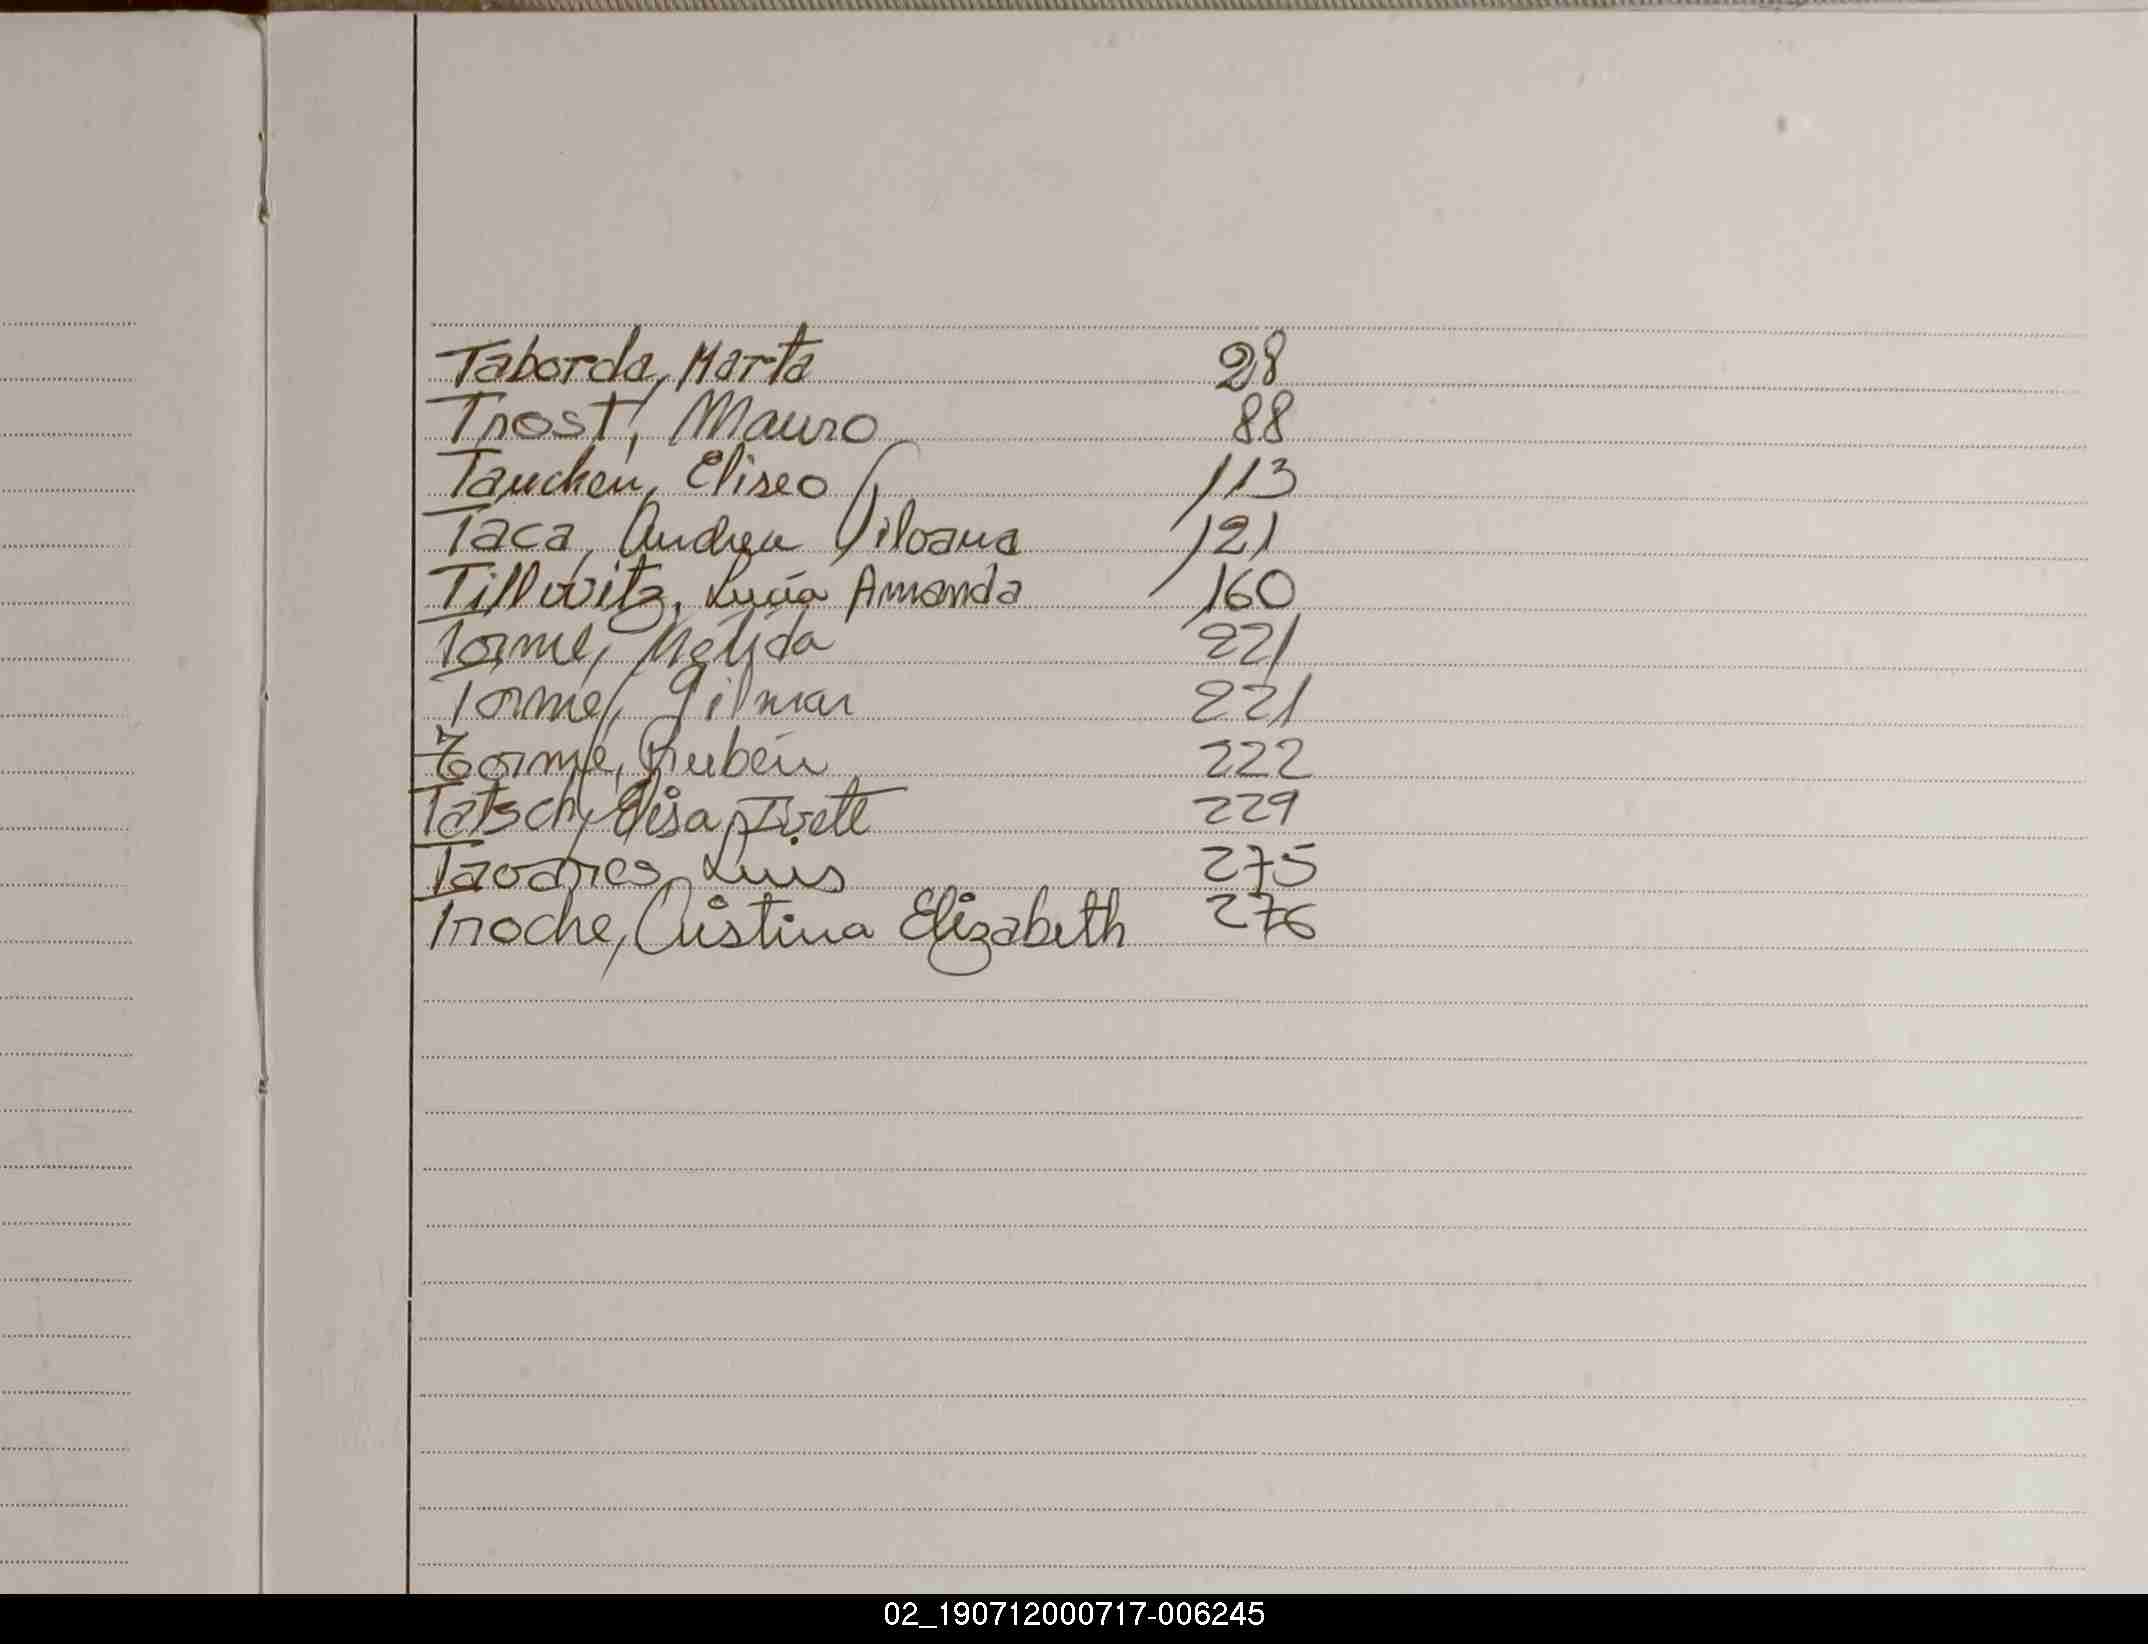 Taborda, Marta 28
Trost, Mauro 88
Tauchen, Eliseo 113
Taca, Andrea Silvana 121
Tillwitz, Lucía Amanda 160
Torme, Nélida 221
Torme, Gilmar 221
Torme, Rubén 222
Tatsch, Elisa Ivete 229
Tavares Luis 275
Troche, Cristina Elizabeth 276
02_190712000717-006245